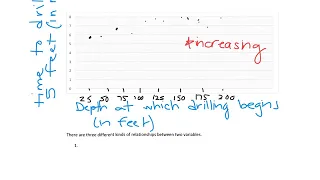 time to drill
5 feet (in
*increasing
25 50 75 100 125 150 175 200
Depth at which drilling begins
(in feet)
There are three different kinds of relationships between two variables.
1.